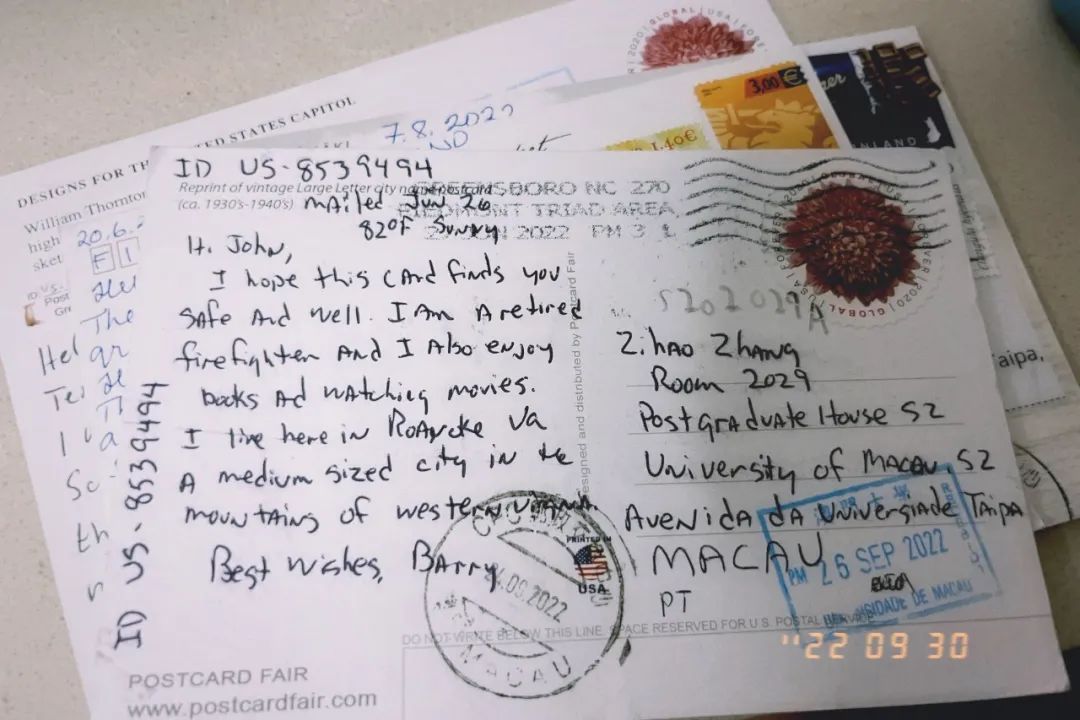 DESIGNS FOR THE UNITED STATES CAPITOL
William Thornton
high
sket
7.8.2022
20.6.2
FI
GLOBAL USA FOREVER 2020
3,00 €
1.40€
ID US-8539494
Reprint of vintage Large Letter city name postcard
(ca. 1930's-1940's)
mailed Jun 26
82°F Sunny
GREENSBORO NC 270
PIEDMONT TRIAD AREA
JUN 2022 PM 3 L
Hi John,
I hope this card finds you
safe and well. I Am A retired
firefighter And I Also enjoy
books Ad watching movies.
I live here in Roanoke Va
A medium sized city in the
mountains of western Virginia
Best Wishes, Barry
ID US-8539494
Designed and distributed by Postcard Fair
S202029A
Zihao Zhang
Room 2029
Postgraduate House S2
University of Macau, S2
Avenida da Universidade Taipa
MACAU
PT
PM 26 SEP 2022
UNIVERSIDADE DE MACAU
PRINTED IN
USA
.09.2022
MACAU
DO NOT WRITE BELOW THIS LINE. SPACE RESERVED FOR U.S. POSTAL SERVICE
POSTCARD FAIR
www.postcardfair.com
aipa,
The
'22 09 30